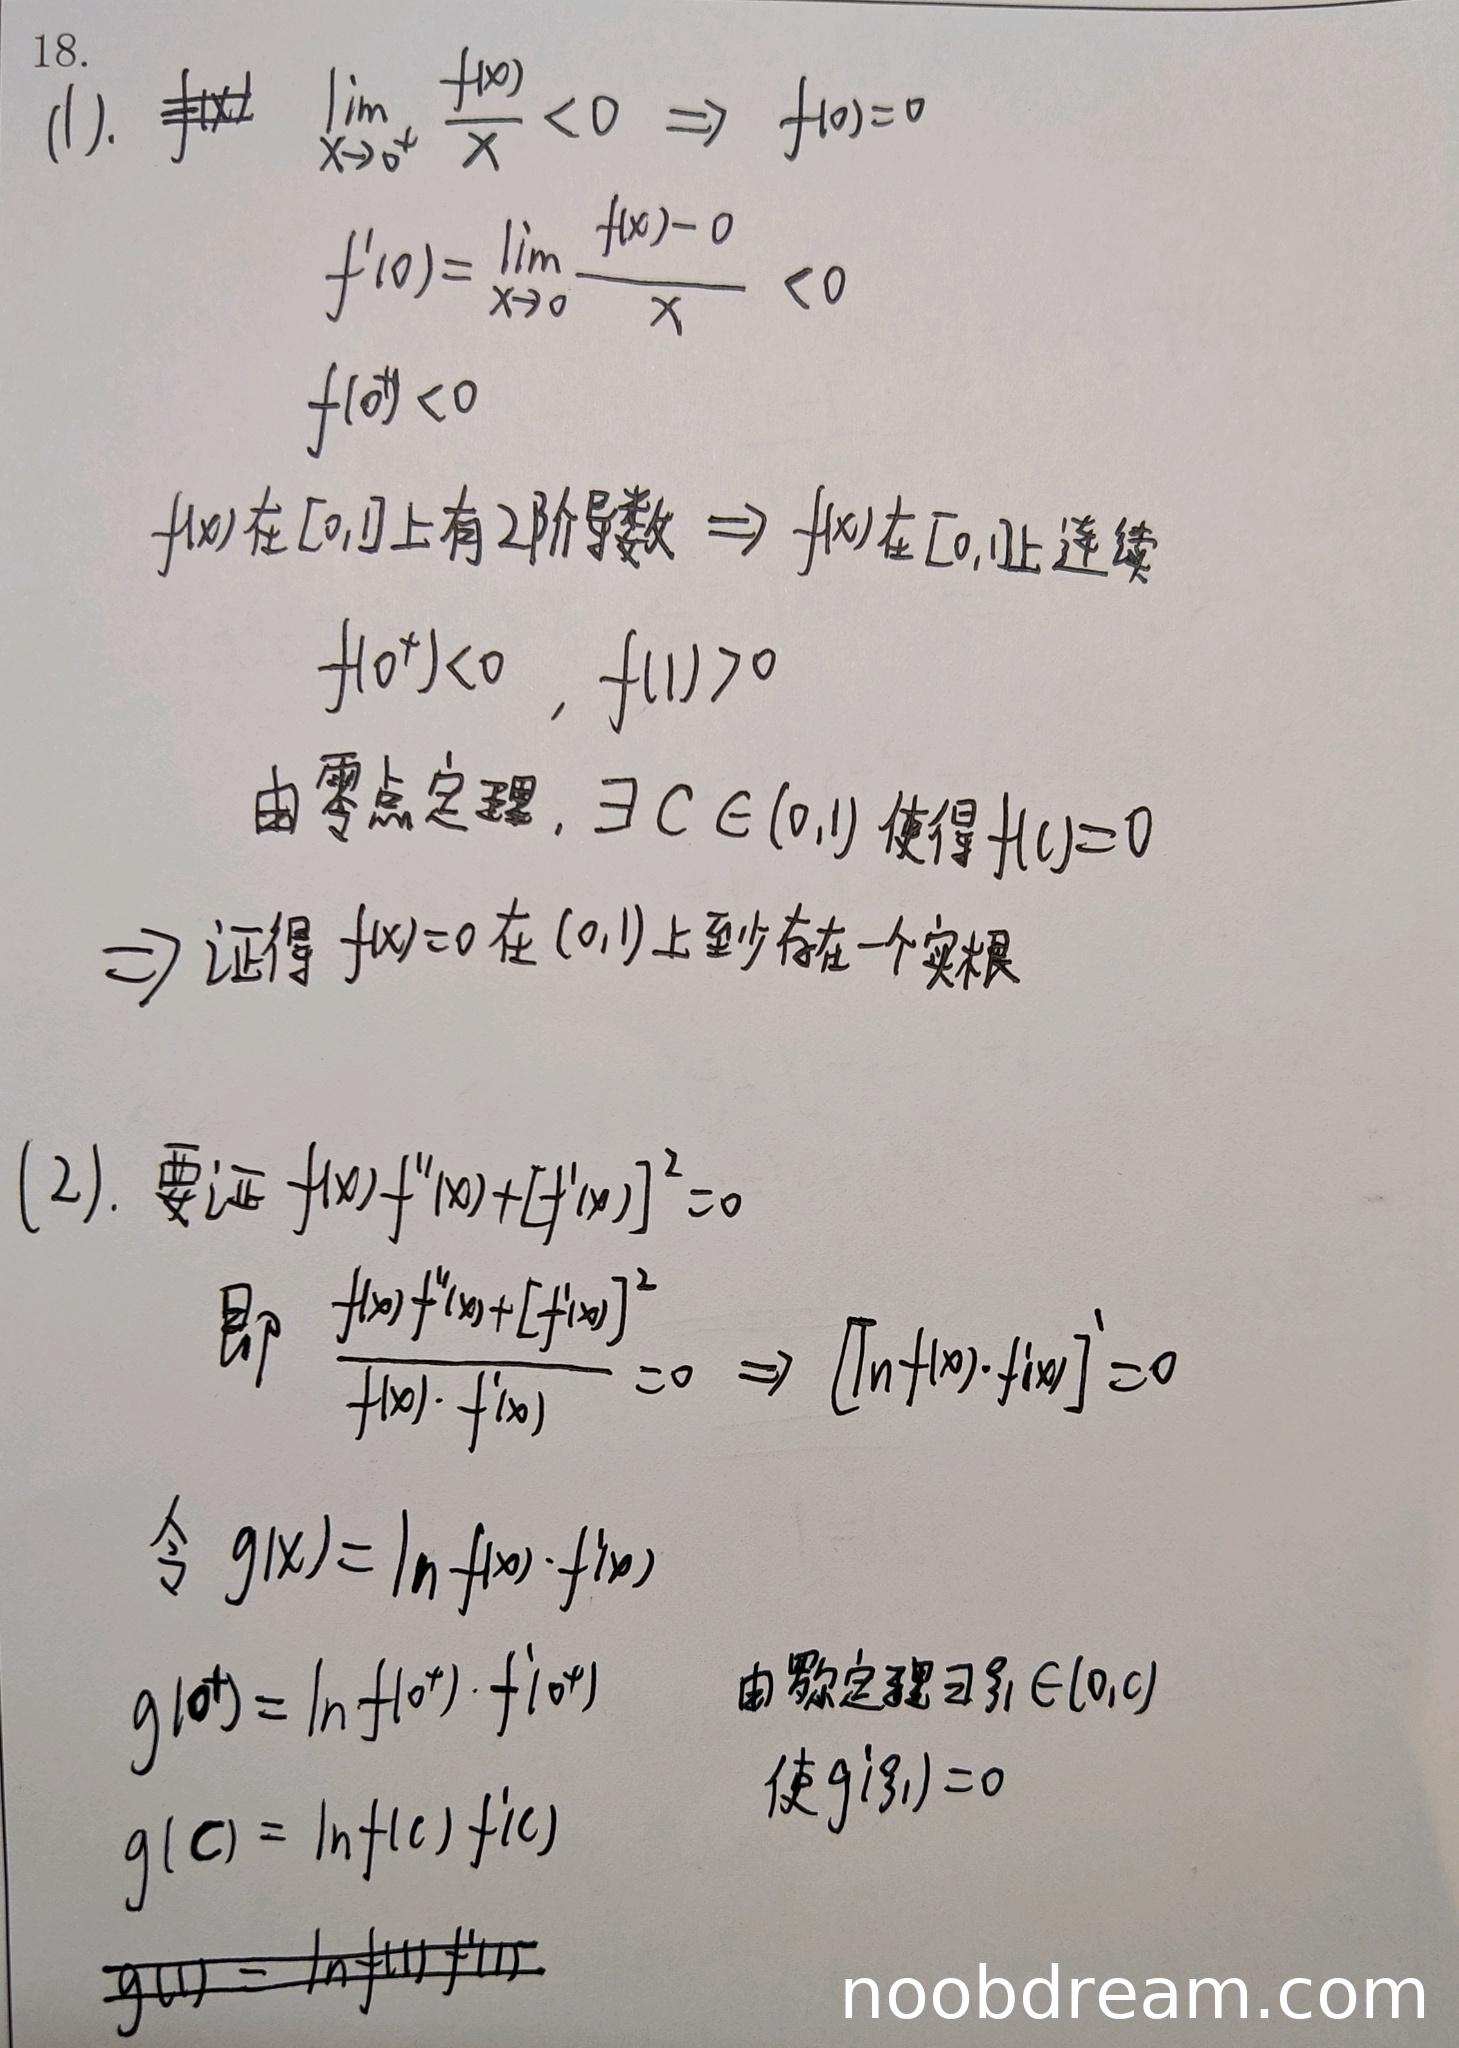 18.
(1). f(x) lim x→0⁺ f(x)/x < 0 ⇒ f(0)=0
f'(0) = lim x→0 (f(x)-0)/x < 0
f(0⁺) < 0
f(x)在[0,1]上有2阶导数 ⇒ f(x)在[0,1]上连续
f(0⁺)<0 , f(1)>0
由零点定理, ∃ C ∈ (0,1) 使得 f(c)=0
⇒ 证得 f(x)=0 在 (0,1) 上至少存在一个实根
(2). 要证 f(x) f''(x)+[f'(x)]²=0
即 (f(x) f''(x)+[f'(x)]²)/(f(x)·f'(x)) =0 ⇒ [ln f(x)·f'(x)]'=0
令 g(x)= ln f(x)·f'(x)
g(0⁺) = ln f(0⁺)·f'(0⁺) 由罗尔定理∃ξ₁∈(0,c)
使g'(ξ₁)=0
g(c) = ln f(c) f'(c)
g(1) = ln f(1) f'(1)
noobdream.com